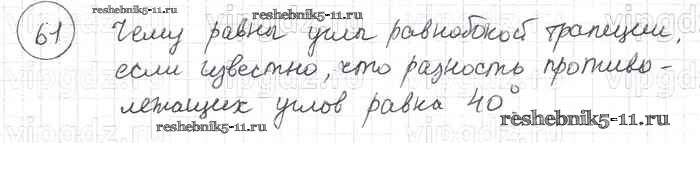 reshebnik5-11.ru
61 Чему равны углы равнобокой трапеции,
если известно, что разность противо-
лежащих углов равна 40°
reshebnik5-11.ru
reshebnik5-11.ru